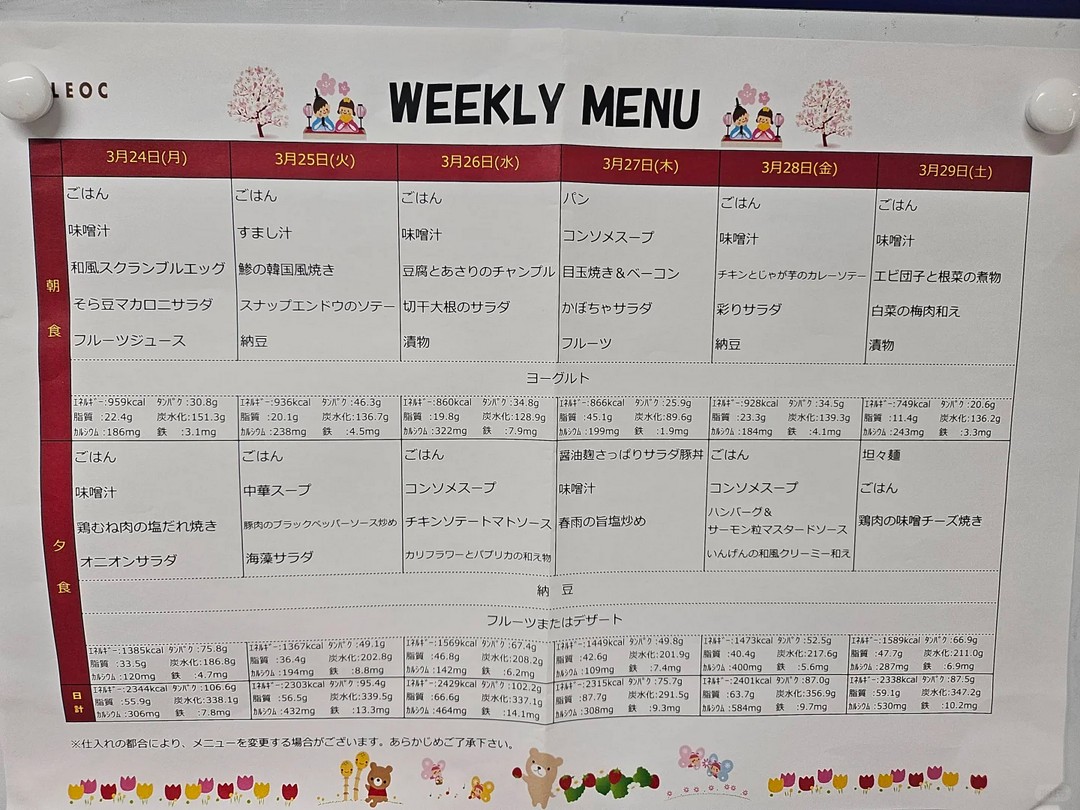 LEOC
WEEKLY MENU
3月24日(月) 3月25日(火) 3月26日(水) 3月27日(木) 3月28日(金) 3月29日(土)
朝食
ごはん ごはん ごはん パン ごはん ごはん
味噌汁 すまし汁 味噌汁 コンソメスープ 味噌汁 味噌汁
和風スクランブルエッグ 鯵の韓国風焼き 豆腐とあさりのチャンプル 目玉焼き＆ベーコン チキンとじゃが芋のカレーソテー エビ団子と根菜の煮物
そら豆マカロニサラダ スナップエンドウのソテー 切干大根のサラダ かぼちゃサラダ 彩りサラダ 白菜の梅肉和え
フルーツジュース 納豆 漬物 フルーツ 納豆 漬物
ヨーグルト
ｴﾈﾙｷﾞｰ:959kcal ﾀﾝﾊﾟｸ:30.8g ｴﾈﾙｷﾞｰ:936kcal ﾀﾝﾊﾟｸ:46.3g ｴﾈﾙｷﾞｰ:860kcal ﾀﾝﾊﾟｸ:34.8g ｴﾈﾙｷﾞｰ:866kcal ﾀﾝﾊﾟｸ:25.9g ｴﾈﾙｷﾞｰ:928kcal ﾀﾝﾊﾟｸ:34.5g ｴﾈﾙｷﾞｰ:749kcal ﾀﾝﾊﾟｸ:20.6g
脂質 :22.4g 炭水化:151.3g 脂質 :20.1g 炭水化:136.7g 脂質 :19.8g 炭水化:128.9g 脂質 :45.1g 炭水化:89.6g 脂質 :23.3g 炭水化:139.3g 脂質 :11.4g 炭水化:136.2g
ｶﾙｼｳﾑ :186mg 鉄 :3.1mg ｶﾙｼｳﾑ :238mg 鉄 :4.5mg ｶﾙｼｳﾑ :322mg 鉄 :7.9mg ｶﾙｼｳﾑ :199mg 鉄 :1.9mg ｶﾙｼｳﾑ :184mg 鉄 :4.1mg ｶﾙｼｳﾑ :243mg 鉄 :3.3mg
夕食
ごはん ごはん ごはん 醤油麹さっぱりサラダ豚丼 ごはん 坦々麺
味噌汁 中華スープ コンソメスープ 味噌汁 コンソメスープ ごはん
鶏むね肉の塩だれ焼き 豚肉のブラックペッパーソース炒め チキンソテートマトソース 春雨の旨塩炒め ハンバーグ＆ 鶏肉の味噌チーズ焼き
サーモン粒マスタードソース
オニオンサラダ 海藻サラダ カリフラワーとパプリカの和え物 いんげんの和風クリーミー和え
納 豆
フルーツまたはデザート
ｴﾈﾙｷﾞｰ:1385kcal ﾀﾝﾊﾟｸ:75.8g ｴﾈﾙｷﾞｰ:1367kcal ﾀﾝﾊﾟｸ:49.1g ｴﾈﾙｷﾞｰ:1569kcal ﾀﾝﾊﾟｸ:67.4g ｴﾈﾙｷﾞｰ:1449kcal ﾀﾝﾊﾟｸ:49.8g ｴﾈﾙｷﾞｰ:1473kcal ﾀﾝﾊﾟｸ:52.5g ｴﾈﾙｷﾞｰ:1589kcal ﾀﾝﾊﾟｸ:66.9g
脂質 :33.5g 炭水化:186.8g 脂質 :36.4g 炭水化:202.8g 脂質 :46.8g 炭水化:208.2g 脂質 :42.6g 炭水化:201.9g 脂質 :40.4g 炭水化:217.6g 脂質 :47.7g 炭水化:211.0g
ｶﾙｼｳﾑ :120mg 鉄 :4.7mg ｶﾙｼｳﾑ :194mg 鉄 :8.8mg ｶﾙｼｳﾑ :142mg 鉄 :6.2mg ｶﾙｼｳﾑ :109mg 鉄 :7.4mg ｶﾙｼｳﾑ :400mg 鉄 :5.6mg ｶﾙｼｳﾑ :287mg 鉄 :6.9mg
日計
ｴﾈﾙｷﾞｰ:2344kcal ﾀﾝﾊﾟｸ:106.6g ｴﾈﾙｷﾞｰ:2303kcal ﾀﾝﾊﾟｸ:95.4g ｴﾈﾙｷﾞｰ:2429kcal ﾀﾝﾊﾟｸ:102.2g ｴﾈﾙｷﾞｰ:2315kcal ﾀﾝﾊﾟｸ:75.7g ｴﾈﾙｷﾞｰ:2401kcal ﾀﾝﾊﾟｸ:87.0g ｴﾈﾙｷﾞｰ:2338kcal ﾀﾝﾊﾟｸ:87.5g
脂質 :55.9g 炭水化:338.1g 脂質 :56.5g 炭水化:339.5g 脂質 :66.6g 炭水化:337.1g 脂質 :87.7g 炭水化:291.5g 脂質 :63.7g 炭水化:356.9g 脂質 :59.1g 炭水化:347.2g
ｶﾙｼｳﾑ :306mg 鉄 :7.8mg ｶﾙｼｳﾑ :432mg 鉄 :13.3mg ｶﾙｼｳﾑ :464mg 鉄 :14.1mg ｶﾙｼｳﾑ :308mg 鉄 :9.3mg ｶﾙｼｳﾑ :584mg 鉄 :9.7mg ｶﾙｼｳﾑ :530mg 鉄 :10.2mg
※仕入れの都合により、メニューを変更する場合がございます。あらかじめご了承下さい。